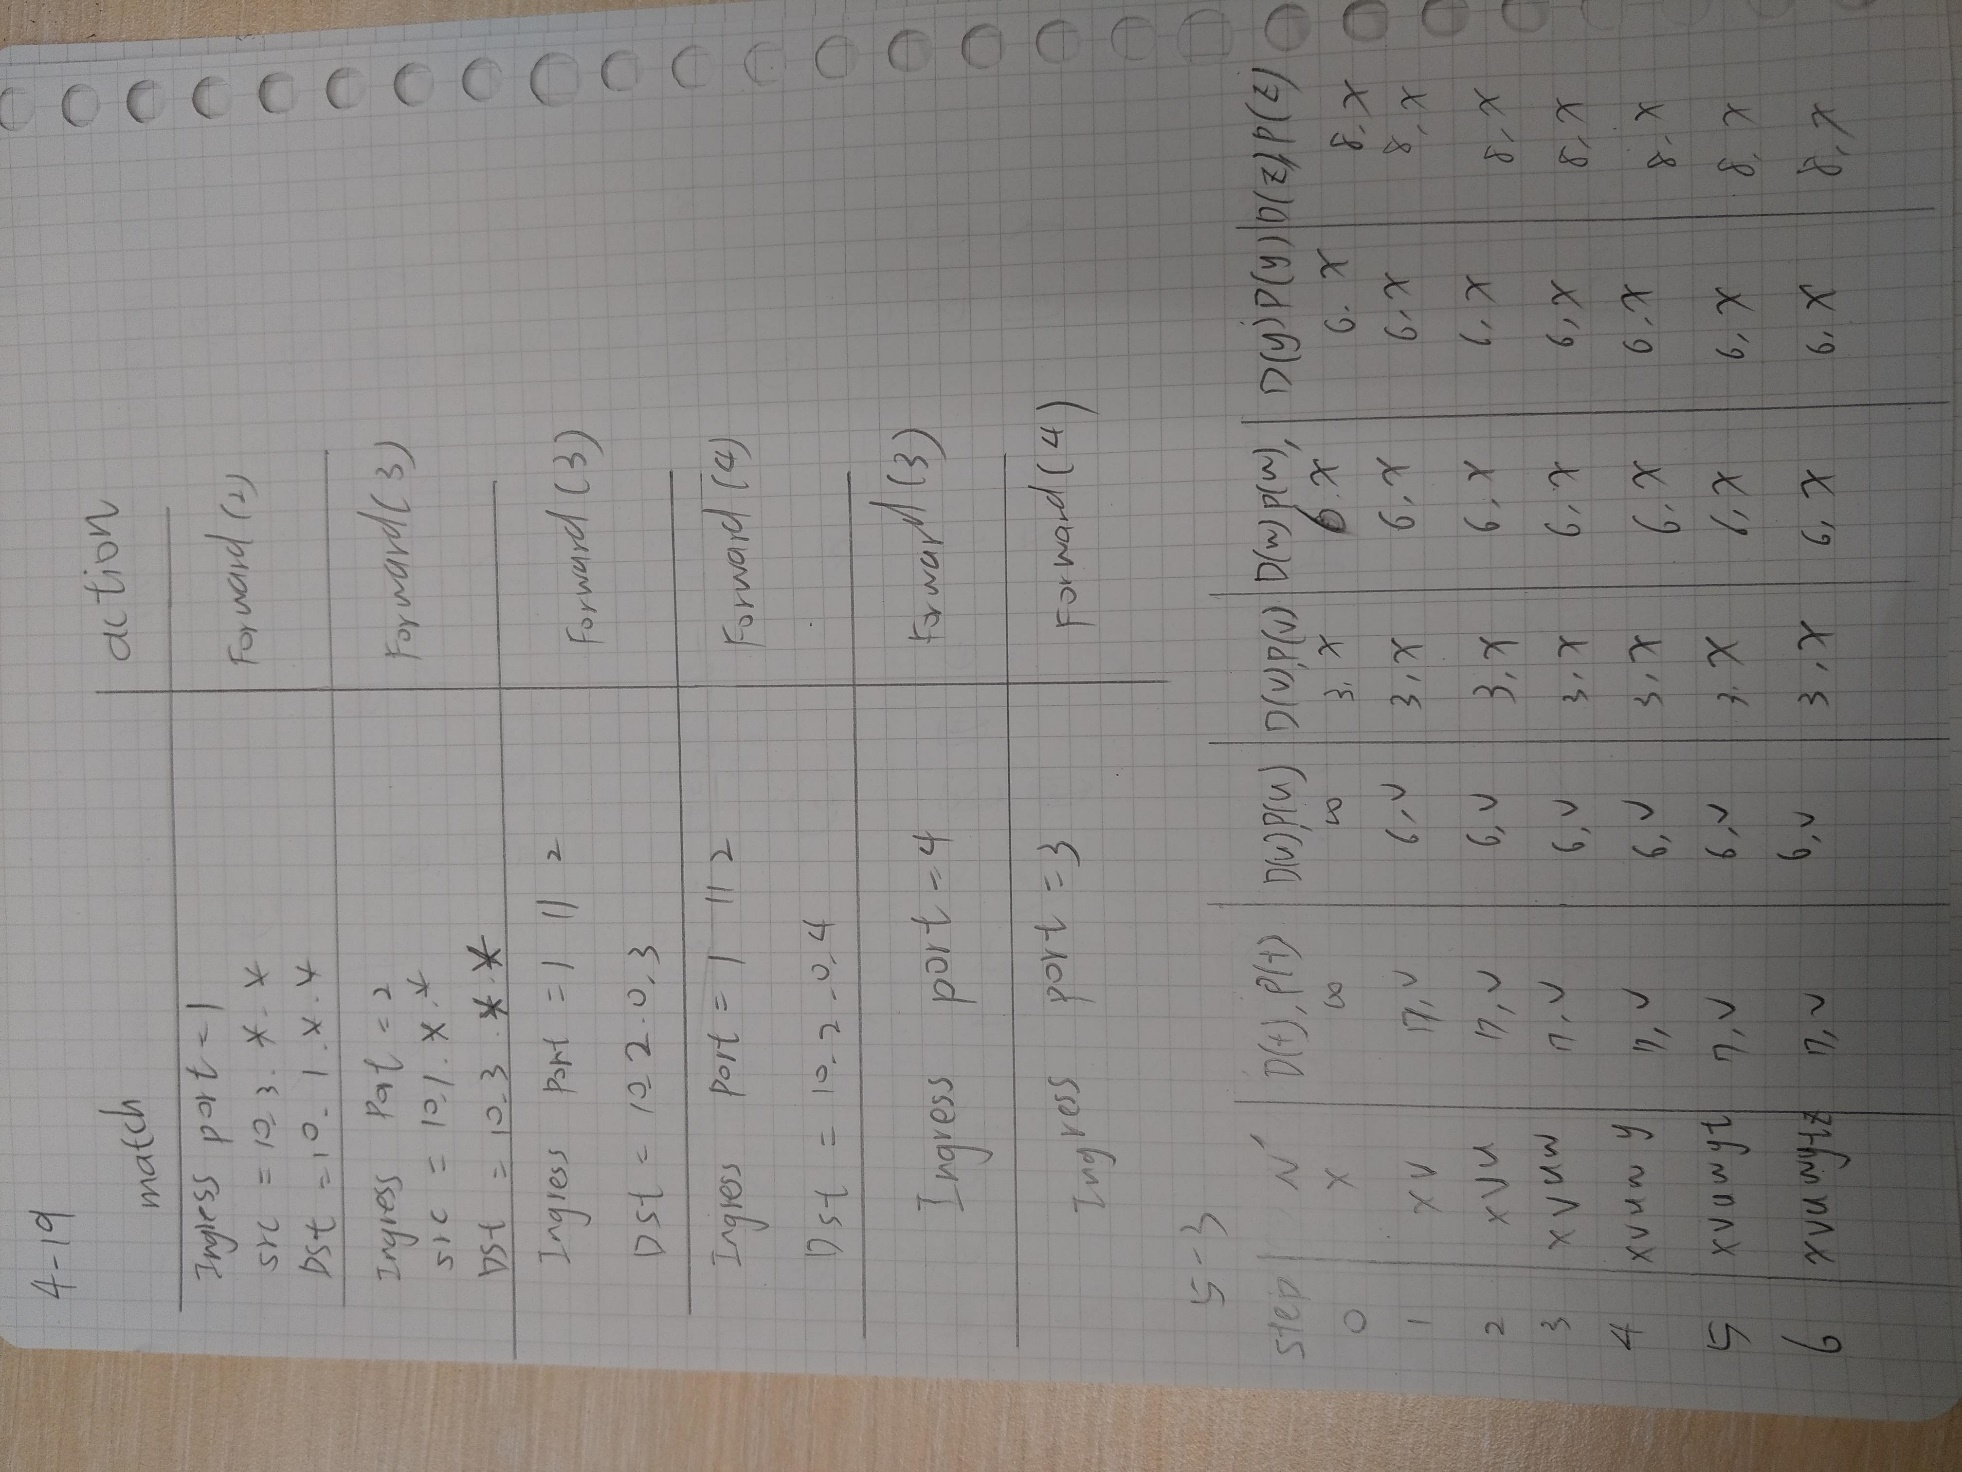 4-19
match action
Ingress port = 1 Forward (2)
src = 10.3.*.*
Dst = 10.1.*.*
Ingress Port = 2 Forward (3)
src = 10.1.*.*
Dst = 10.3.*.*
Ingress Port = 1 || 2 Forward (3)
Dst = 10.2.0.3
Ingress Port = 1 || 2 Forward (4)
Dst = 10.2.0.4
Ingress port = 4 Forward (3)
Ingress port = 3 Forward (4)
5-3
Step N' D(t), P(t) D(u)P(u) D(v)P(v) D(w)P(w), D(y)P(y) D(z)P(z)
0 x ∞ ∞ 3.x 6.x 6.x 8,x
1 xv 7,v 6,v 3,x 6,x 6,x 8,x
2 xvu 7,v 6,v 3,x 6,x 6,x 8,x
3 xvuw 7,v 6,v 3,x 6,x 6,x 8,x
4 xvuwy 7,v 6,v 3,x 6,x 6.x 8.x
5 xvuwyt 7,v 6,v 3.x 6,x 6,x 8,x
6 xvuwytz 7,v 6,v 3,x 6,x 6,x 8,x